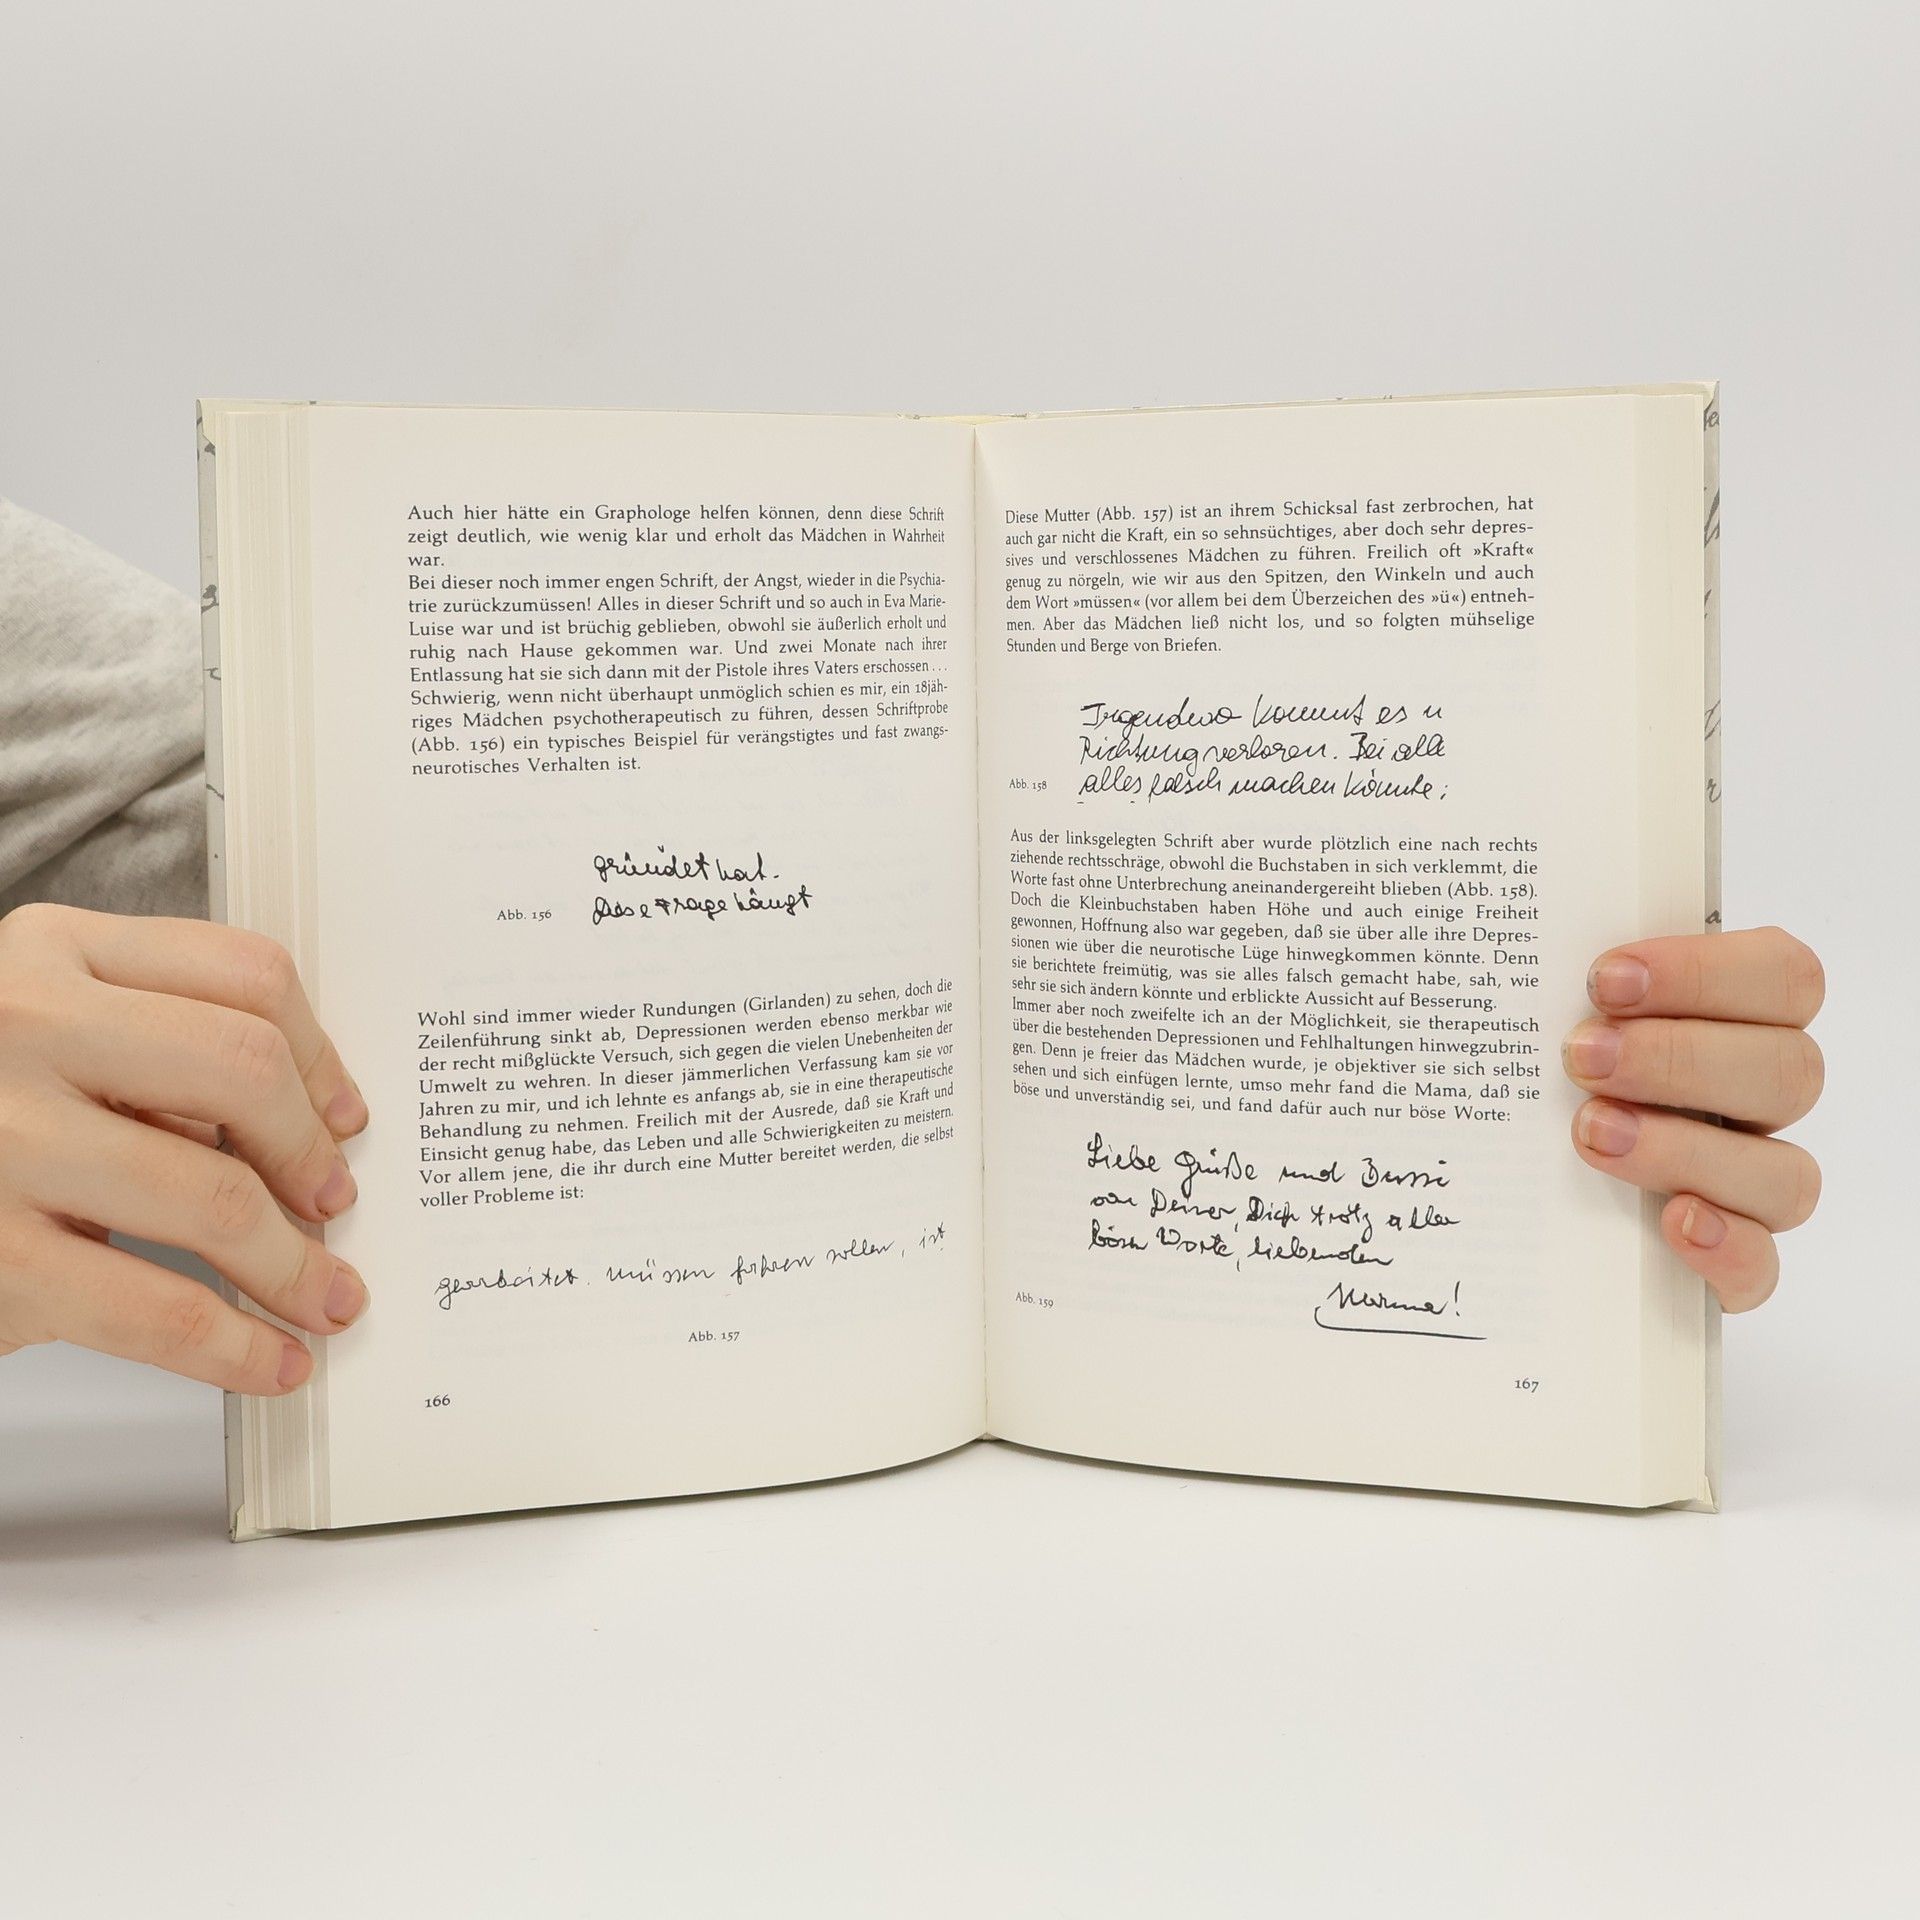 Auch hier hätte ein Graphologe helfen können, denn diese Schrift
zeigt deutlich, wie wenig klar und erholt das Mädchen in Wahrheit
war.
Bei dieser noch immer engen Schrift, der Angst, wieder in die Psychia-
trie zurückzumüssen! Alles in dieser Schrift und so auch in Eva Marie-
Luise war und ist brüchig geblieben, obwohl sie äußerlich erholt und
ruhig nach Hause gekommen war. Und zwei Monate nach ihrer
Entlassung hat sie sich dann mit der Pistole ihres Vaters erschossen...
Schwierig, wenn nicht überhaupt unmöglich schien es mir, ein 18jäh-
riges Mädchen psychotherapeutisch zu führen, dessen Schriftprobe
(Abb. 156) ein typisches Beispiel für verängstigtes und fast zwangs-
neurotisches Verhalten ist.
gründet hat.
Diese Frage hängt
Abb. 156
Wohl sind immer wieder Rundungen (Girlanden) zu sehen, doch die
Zeilenführung sinkt ab, Depressionen werden ebenso merkbar wie
der recht mißglückte Versuch, sich gegen die vielen Unebenheiten der
Umwelt zu wehren. In dieser jämmerlichen Verfassung kam sie vor
Jahren zu mir, und ich lehnte es anfangs ab, sie in eine therapeutische
Behandlung zu nehmen. Freilich mit der Ausrede, daß sie Kraft und
Einsicht genug habe, das Leben und alle Schwierigkeiten zu meistern.
Vor allem jene, die ihr durch eine Mutter bereitet werden, die selbst
voller Probleme ist:
gearbeitet. müssen führen sollen, ist
Abb. 157
166
Diese Mutter (Abb. 157) ist an ihrem Schicksal fast zerbrochen, hat
auch gar nicht die Kraft, ein so sehnsüchtiges, aber doch sehr depres-
sives und verschlossenes Mädchen zu führen. Freilich oft »Kraft«
genug zu nörgeln, wie wir aus den Spitzen, den Winkeln und auch
dem Wort »müssen« (vor allem bei dem Überzeichen des »ü«) entneh-
men. Aber das Mädchen ließ nicht los, und so folgten mühselige
Stunden und Berge von Briefen.
Irgendwo kommt es n
Richtung verloren. Bei alle
alles falsch machen könnte;
Abb. 158
Aus der linksgelegten Schrift aber wurde plötzlich eine nach rechts
ziehende rechtsschräge, obwohl die Buchstaben in sich verklemmt, die
Worte fast ohne Unterbrechung aneinandergereiht blieben (Abb. 158).
Doch die Kleinbuchstaben haben Höhe und auch einige Freiheit
gewonnen, Hoffnung also war gegeben, daß sie über alle ihre Depres-
sionen wie über die neurotische Lüge hinwegkommen könnte. Denn
sie berichtete freimütig, was sie alles falsch gemacht habe, sah, wie
sehr sie sich ändern könnte und erblickte Aussicht auf Besserung.
Immer aber noch zweifelte ich an der Möglichkeit, sie therapeutisch
über die bestehenden Depressionen und Fehlhaltungen hinwegzubrin-
gen. Denn je freier das Mädchen wurde, je objektiver sie sich selbst
sehen und sich einfügen lernte, umso mehr fand die Mama, daß sie
böse und unverständig sei, und fand dafür auch nur böse Worte:
Liebe Grüße und Bussi
von Deiner, Dich trotz aller
bösen Worte, liebenden
Mama!
Abb. 159
167